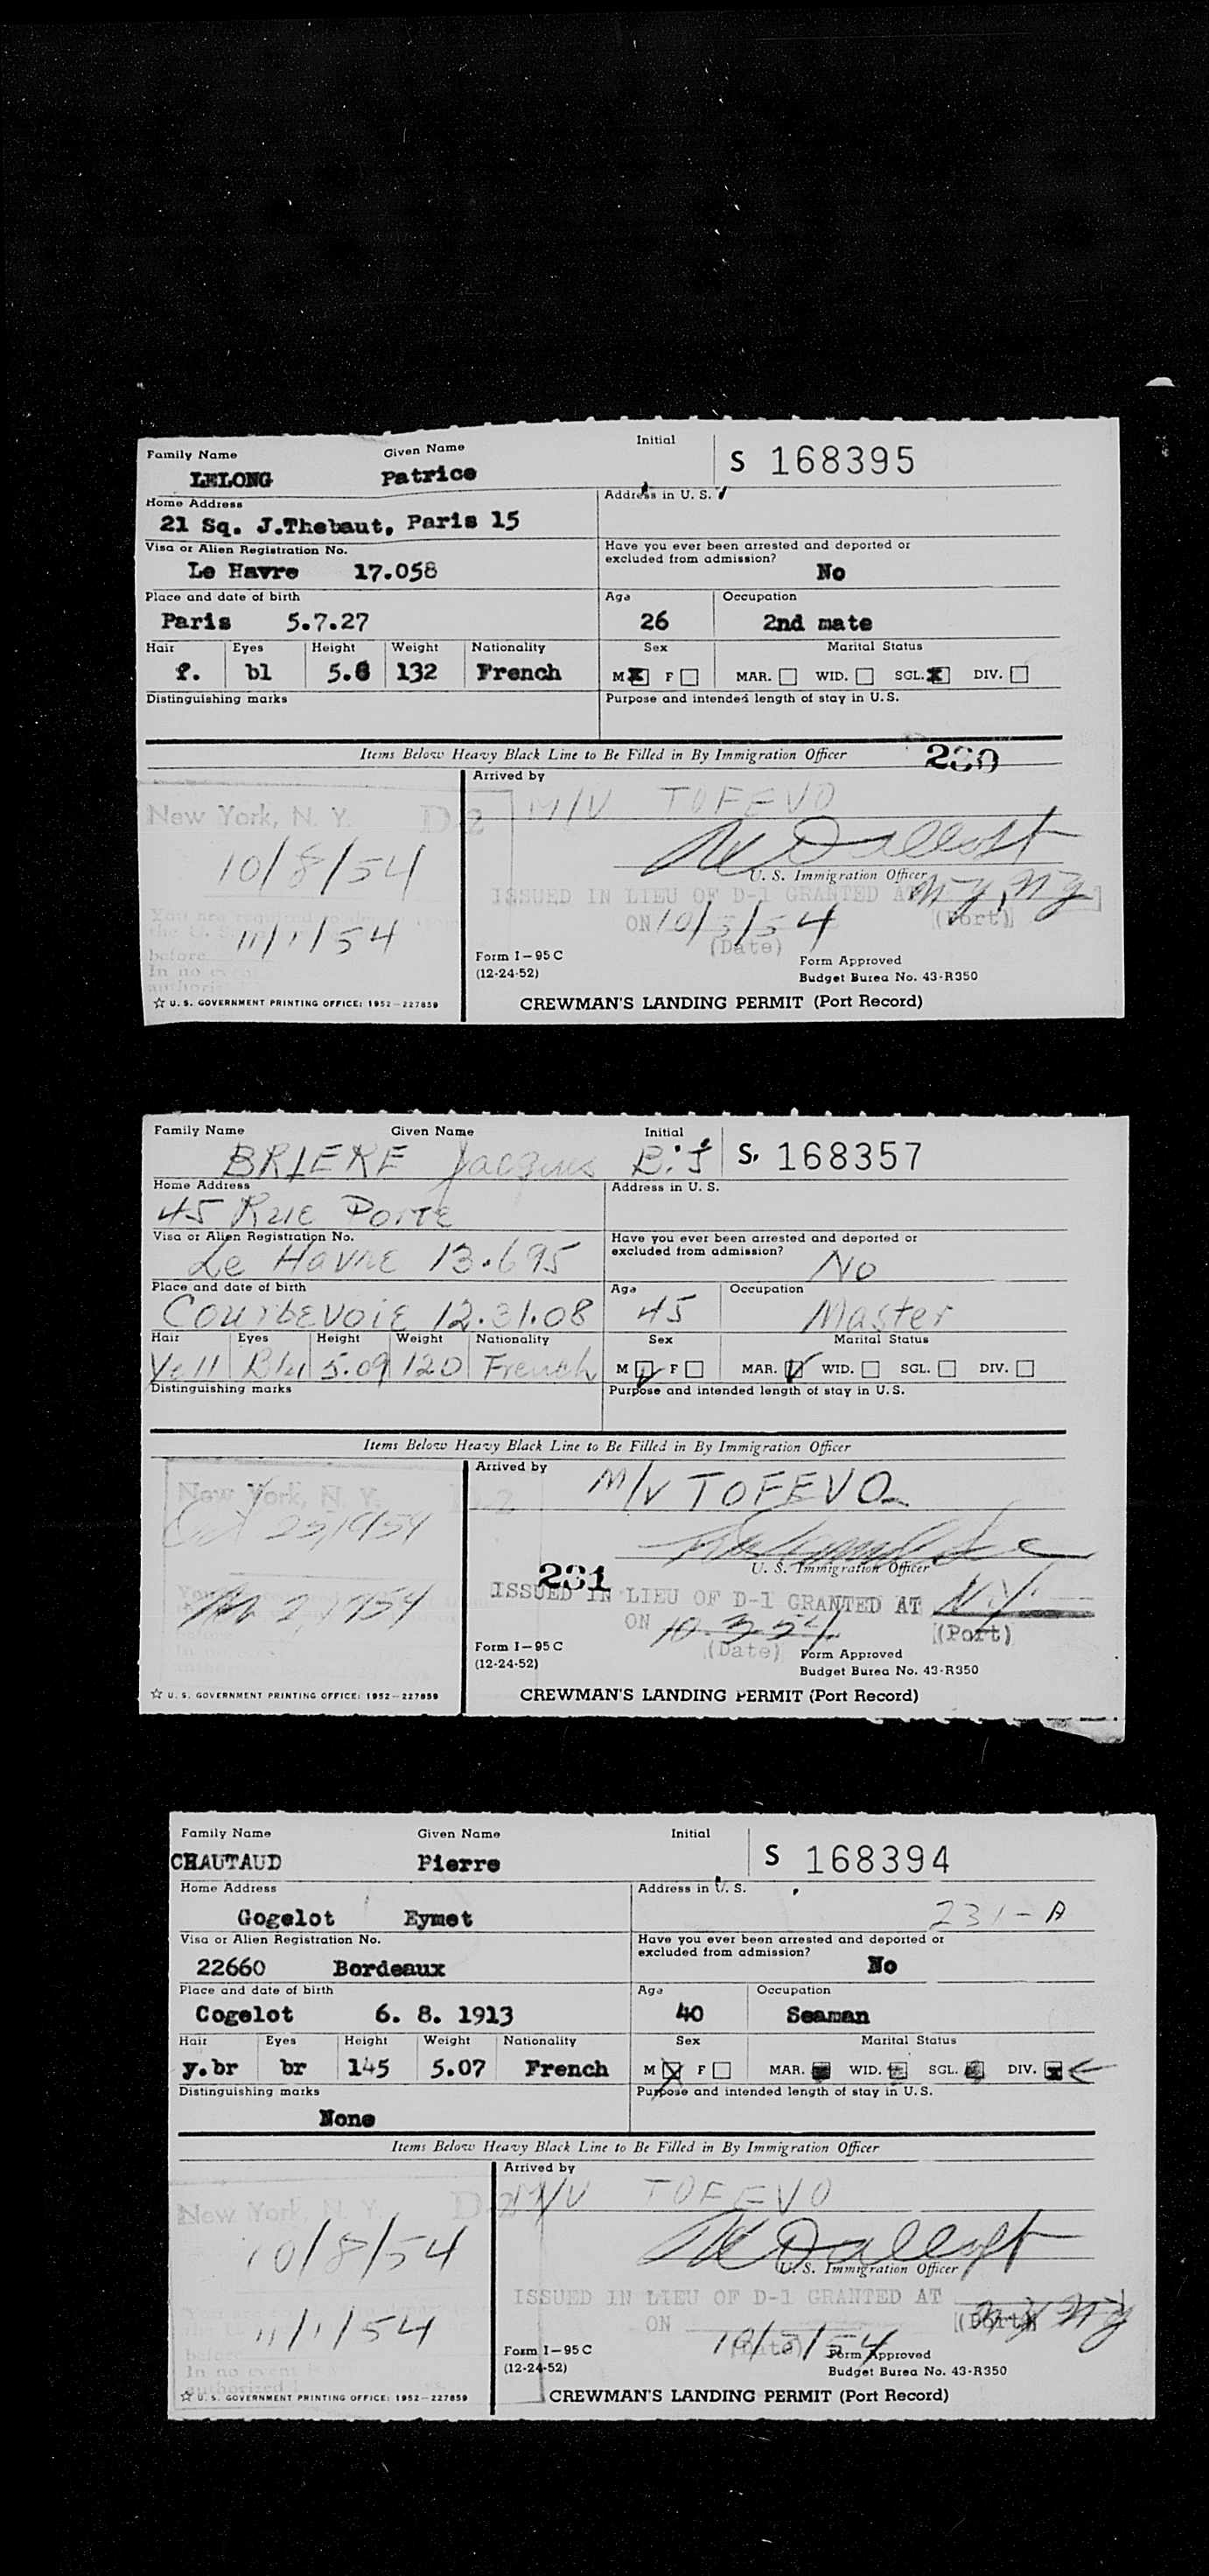 Family Name Given Name Initial
LELONG Patrice S 168395
Home Address Address in U. S.
21 Sq. J.Thebaut, Paris 15
Visa or Alien Registration No. Have you ever been arrested and deported or excluded from admission?
Le Havre 17.058 No
Place and date of birth Age Occupation
Paris 5.7.27 26 2nd mate
Hair Eyes Height Weight Nationality Sex Marital Status
f. bl 5.6 132 French M F MAR. WID. SGL. DIV.
Distinguishing marks Purpose and intended length of stay in U.S.
Items Below Heavy Black Line to Be Filled in By Immigration Officer 230
Arrived by
M/V TOFEVO
New York, N. Y. D-2
10/8/54
U. S. Immigration Officer
ISSUED IN LIEU OF D-1 GRANTED AT NY, NY
ON 10/3/54 (Port)
(Date)
11/1/54
before
In no event
Form I-95 C Form Approved
(12-24-52) Budget Burea No. 43-R350
☆ U. S. GOVERNMENT PRINTING OFFICE: 1952-227859 CREWMAN'S LANDING PERMIT (Port Record)
Family Name Given Name Initial
BRIERE Jacques B.J S. 168357
Home Address Address in U. S.
45 Rue Porte
Visa or Alien Registration No. Have you ever been arrested and deported or excluded from admission?
Le Havre 13.695 No
Place and date of birth Age Occupation
Courbevoie 12.31.08 45 Master
Hair Eyes Height Weight Nationality Sex Marital Status
Yell Blu 5.09 120 French M F MAR. WID. SGL. DIV.
Distinguishing marks Purpose and intended length of stay in U.S.
Items Below Heavy Black Line to Be Filled in By Immigration Officer
Arrived by
M/V TOFEVO
New York, N. Y.
Oct 25, 1954
U. S. Immigration Officer
231
ISSUED IN LIEU OF D-1 GRANTED AT N.Y.
ON 10.3.54 (Port)
(Date)
Form I-95 C Form Approved
(12-24-52) Budget Burea No. 43-R350
☆ U. S. GOVERNMENT PRINTING OFFICE: 1952-227859 CREWMAN'S LANDING PERMIT (Port Record)
Family Name Given Name Initial
CHAUTAUD Pierre S 168394
Home Address Address in U. S.
Gogelot Eymet 231-A
Visa or Alien Registration No. Have you ever been arrested and deported or excluded from admission?
22660 Bordeaux No
Place and date of birth Age Occupation
Cogelot 6. 8. 1913 40 Seaman
Hair Eyes Height Weight Nationality Sex Marital Status
y.br br 145 5.07 French M F MAR. WID. SGL. DIV.
Distinguishing marks Purpose and intended length of stay in U.S.
None
Items Below Heavy Black Line to Be Filled in By Immigration Officer
Arrived by
M/V TOFEVO
New York, N. Y.
10/8/54
U. S. Immigration Officer
ISSUED IN LIEU OF D-1 GRANTED AT NY NY
ON 10/3/54 (Port)
(Date)
11/1/54
before
In no event
authorized
Form I-95 C Form Approved
(12-24-52) Budget Burea No. 43-R350
☆ U. S. GOVERNMENT PRINTING OFFICE: 1952-227859 CREWMAN'S LANDING PERMIT (Port Record)